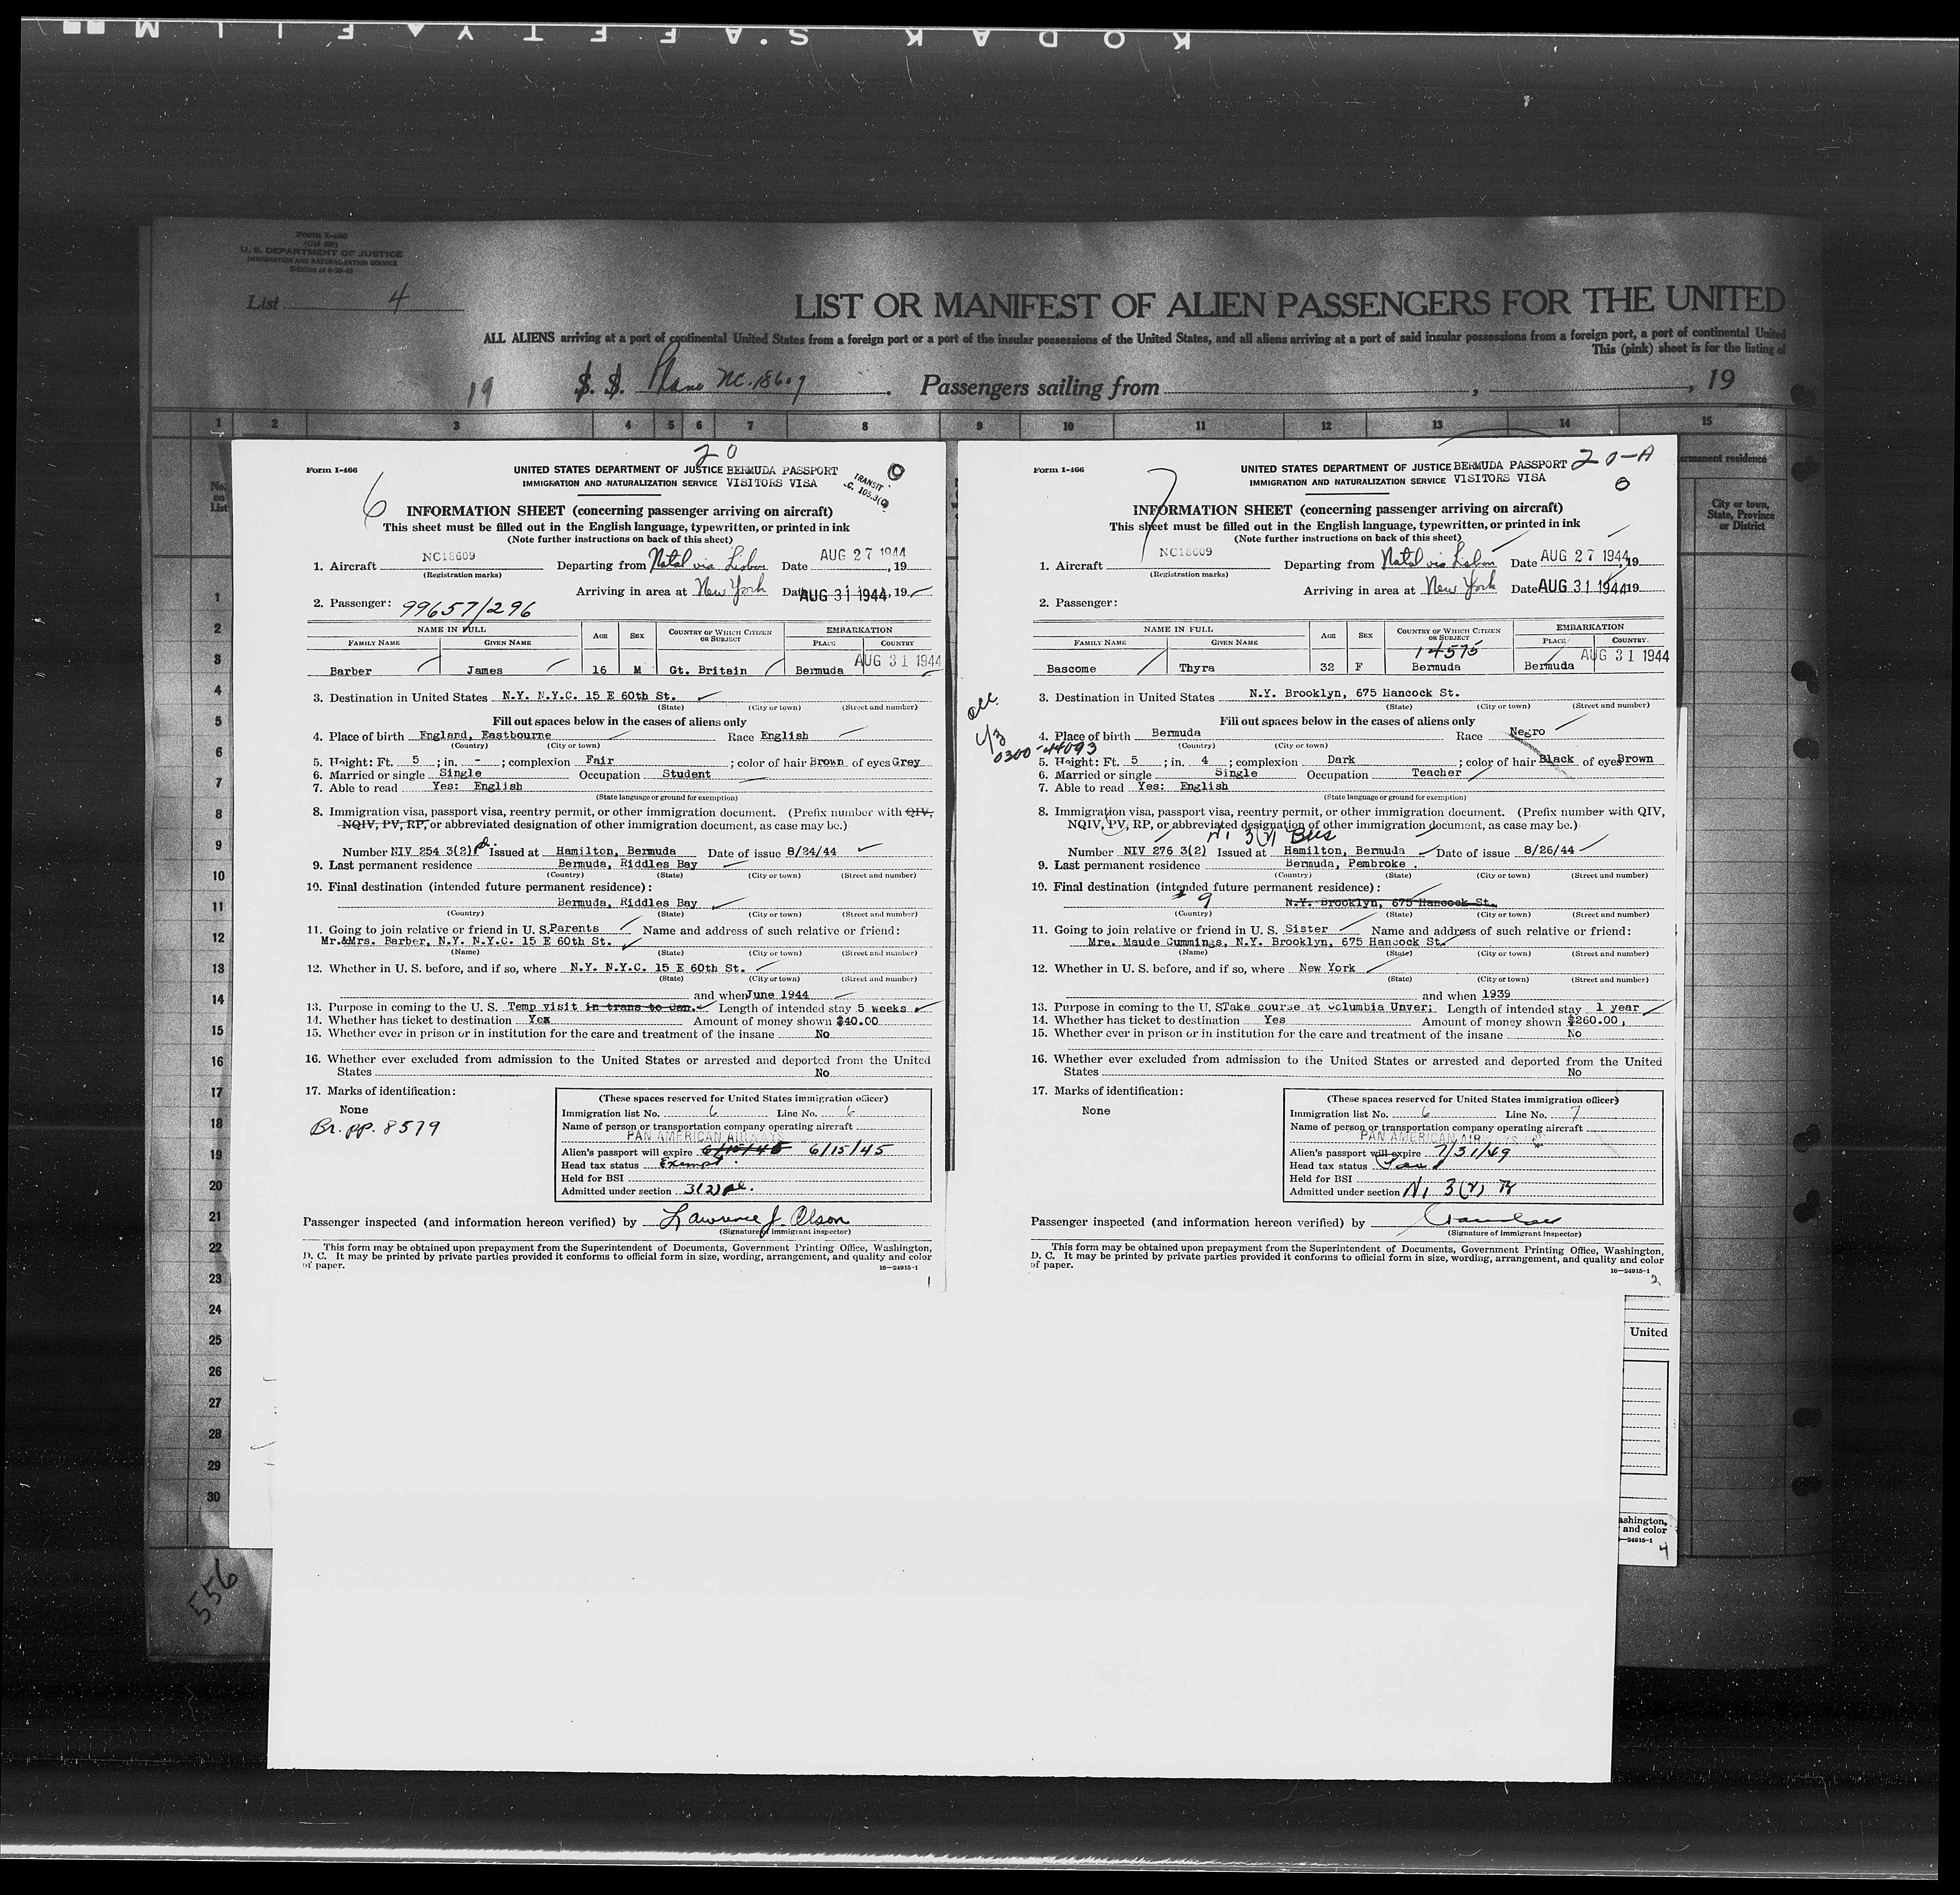 KODAK SAFETY FILM
Form I-466
(Old 500)
U. S. DEPARTMENT OF JUSTICE
IMMIGRATION AND NATURALIZATION SERVICE
List 4
LIST OR MANIFEST OF ALIEN PASSENGERS FOR THE UNITED
ALL ALIENS arriving at a port of continental United States from a foreign port or a port of the insular possessions of the United States, and all aliens arriving at a port of said insular possessions from a foreign port, a port of continental United
This (pink) sheet is for the listing of
19 S. S. Plane NC.18609. Passengers sailing from , , 19
1 2 3 4 5 6 7 8 9 10 11 12 13 14 15
No. on List
permanent residence
City or town, State, Province or District
1
2
3
4
5
6
7
8
9
10
11
12
13
14
15
16
17
18
19
20
21
22
23
24
25
26
27
28
29
30
556
20
Form I-466
UNITED STATES DEPARTMENT OF JUSTICE BERMUDA PASSPORT
IMMIGRATION AND NATURALIZATION SERVICE VISITORS VISA
TRANSIT
6
INFORMATION SHEET (concerning passenger arriving on aircraft)
This sheet must be filled out in the English language, typewritten, or printed in ink
(Note further instructions on back of this sheet)
1. Aircraft NC18609 Departing from Natal via Lisbon Date AUG 27 1944, 19
(Registration marks)
Arriving in area at New York Date AUG 31 1944, 19
2. Passenger: 99657/296
NAME IN FULL AGE SEX COUNTRY OF WHICH CITIZEN OR SUBJECT EMBARKATION
FAMILY NAME GIVEN NAME PLACE COUNTRY
AUG 31 1944
Barber James 16 M Gt. Britain Bermuda
3. Destination in United States N.Y. N.Y.C. 15 E 60th St.
(State) (City or town) (Street and number)
Fill out spaces below in the cases of aliens only
4. Place of birth England, Eastbourne Race English
(Country) (City or town)
5. Height: Ft. 5 ; in. - ; complexion Fair ; color of hair Brown of eyes Grey
6. Married or single Single Occupation Student
7. Able to read Yes: English
(State language or ground for exemption)
8. Immigration visa, passport visa, reentry permit, or other immigration document. (Prefix number with QIV,
NQIV, PV, RP, or abbreviated designation of other immigration document, as case may be.)
Number NIV 254 3(2) Issued at Hamilton, Bermuda Date of issue 8/24/44
9. Last permanent residence Bermuda, Riddles Bay
(Country) (State) (City or town) (Street and number)
10. Final destination (intended future permanent residence):
Bermuda, Riddles Bay
(Country) (State) (City or town) (Street and number)
11. Going to join relative or friend in U. S. Parents Name and address of such relative or friend:
Mr.&Mrs. Barber, N.Y. N.Y.C. 15 E 60th St.
(Name) (State) (City or town) (Street and number)
12. Whether in U. S. before, and if so, where N.Y. N.Y.C. 15 E 60th St.
(State) (City or town) (Street and number)
and when June 1944
13. Purpose in coming to the U. S. Temp visit in trans to Can. Length of intended stay 5 weeks
14. Whether has ticket to destination Yes Amount of money shown $40.00
15. Whether ever in prison or in institution for the care and treatment of the insane No
16. Whether ever excluded from admission to the United States or arrested and deported from the United
States No
17. Marks of identification:
None
Br. pp. 8579
(These spaces reserved for United States immigration officer)
Immigration list No. 6 Line No. 6
Name of person or transportation company operating aircraft
PAN AMERICAN AIRWAYS
Alien's passport will expire 6/15/45 6/15/45
Head tax status Exempt
Held for BSI
Admitted under section 3(2)
Passenger inspected (and information hereon verified) by Lawrence J. Olson
(Signature of immigrant inspector)
This form may be obtained upon prepayment from the Superintendent of Documents, Government Printing Office, Washington,
D. C. It may be printed by private parties provided it conforms to official form in size, wording, arrangement, and quality and color
of paper.
16—24915-1
1
20-A
Form I-466
UNITED STATES DEPARTMENT OF JUSTICE BERMUDA PASSPORT
IMMIGRATION AND NATURALIZATION SERVICE VISITORS VISA
7
INFORMATION SHEET (concerning passenger arriving on aircraft)
This sheet must be filled out in the English language, typewritten, or printed in ink
(Note further instructions on back of this sheet)
1. Aircraft NC18609 Departing from Natal via Lisbon Date AUG 27 1944, 19
(Registration marks)
Arriving in area at New York Date AUG 31 1944 19
2. Passenger:
NAME IN FULL AGE SEX COUNTRY OF WHICH CITIZEN OR SUBJECT EMBARKATION
FAMILY NAME GIVEN NAME PLACE COUNTRY
14575 AUG 31 1944
Bascome Thyra 32 F Bermuda Bermuda
3. Destination in United States N.Y. Brooklyn, 675 Hancock St.
(State) (City or town) (Street and number)
Fill out spaces below in the cases of aliens only
4. Place of birth Bermuda Race Negro
(Country) (City or town)
0300-44093
5. Height: Ft. 5 ; in. 4 ; complexion Dark ; color of hair Black of eyes Brown
6. Married or single Single Occupation Teacher
7. Able to read Yes: English
(State language or ground for exemption)
8. Immigration visa, passport visa, reentry permit, or other immigration document. (Prefix number with QIV,
NQIV, PV, RP, or abbreviated designation of other immigration document, as case may be.)
Number NIV 276 3(2) Issued at Hamilton, Bermuda Date of issue 8/26/44
9. Last permanent residence Bermuda, Pembroke.
(Country) (State) (City or town) (Street and number)
10. Final destination (intended future permanent residence):
# 9 N.Y. Brooklyn, 675 Hancock St.
(Country) (State) (City or town) (Street and number)
11. Going to join relative or friend in U. S. Sister Name and address of such relative or friend:
Mre. Maude Cummings, N.Y. Brooklyn, 675 Hancock St.
(Name) (State) (City or town) (Street and number)
12. Whether in U. S. before, and if so, where New York
(State) (City or town) (Street and number)
and when 1939
13. Purpose in coming to the U. S. Take course at Columbia Unver. Length of intended stay 1 year
14. Whether has ticket to destination Yes Amount of money shown $260.00
15. Whether ever in prison or in institution for the care and treatment of the insane No
16. Whether ever excluded from admission to the United States or arrested and deported from the United
States No
17. Marks of identification:
None
(These spaces reserved for United States immigration officer)
Immigration list No. 6 Line No. 7
Name of person or transportation company operating aircraft
PAN AMERICAN AIRWAYS
Alien's passport will expire 7/31/49
Head tax status
Held for BSI
Admitted under section
Passenger inspected (and information hereon verified) by
(Signature of immigrant inspector)
This form may be obtained upon prepayment from the Superintendent of Documents, Government Printing Office, Washington,
D. C. It may be printed by private parties provided it conforms to official form in size, wording, arrangement, and quality and color
of paper.
16—24915-1
2
United
ashington,
and color
—24915-1
4